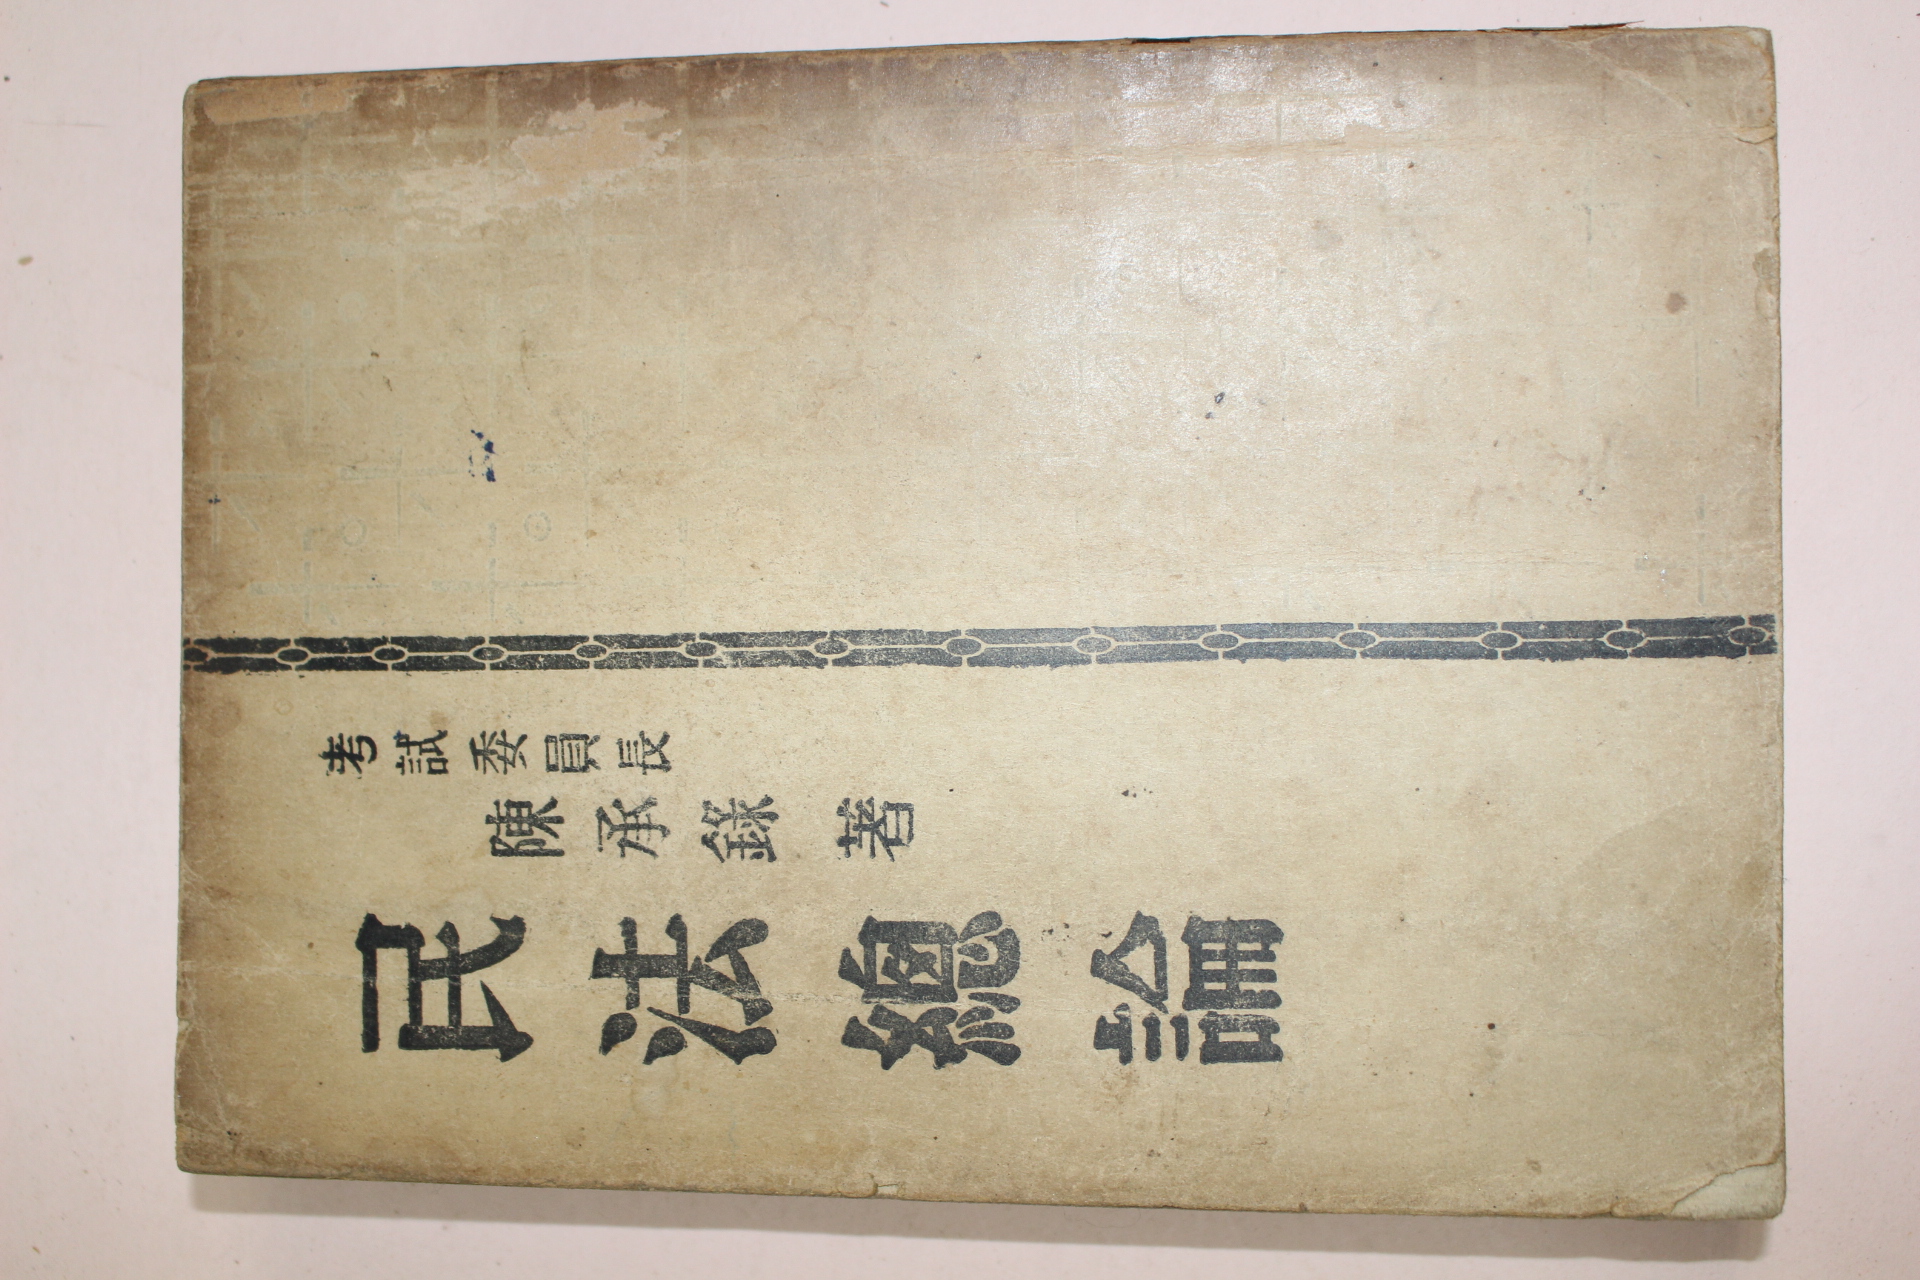 民法總論
陳承錄 著
考試委員長